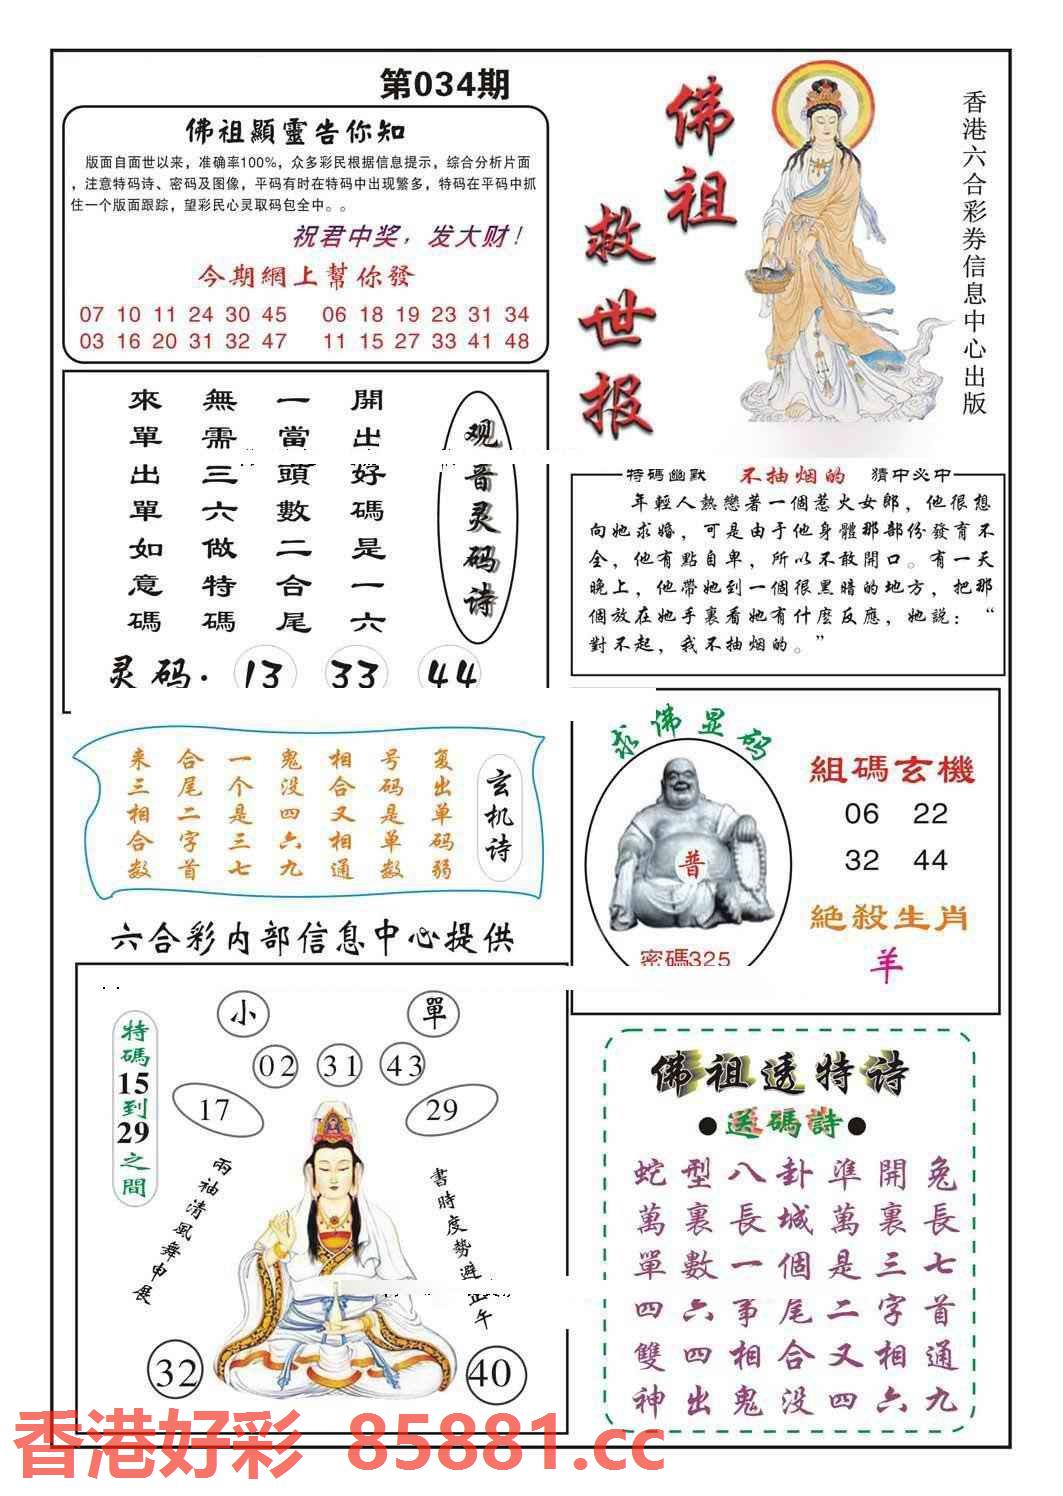 第034期
佛祖顯靈告你知
版面自面世以来，准确率100%，众多彩民根据信息提示，综合分析片面
，注意特码诗、密码及图像，平码有时在特码中出现繁多，特码在平码中抓
住一个版面跟踪，望彩民心灵取码包全中。。
祝君中奖，发大财！
今期網上幫你發
07 10 11 24 30 45 06 18 19 23 31 34
03 16 20 31 32 47 11 15 27 33 41 48
佛祖
救世报
香港六合彩券信息中心出版
观音灵码诗
開出好碼是一六
一當頭數二合尾
無需三六做特碼
來單出單如意碼
灵码. 13 33 44
特碼幽默 不抽烟的 猜中必中
年輕人熱戀著一個惹火女郎，他很想
向她求婚，可是由于他身體那部份發育不
全，他有點自卑，所以不敢開口。有一天
晚上，他帶她到一個很黑暗的地方，把那
個放在她手裏看她有什麼反應，她説：“
對不起，我不抽烟的。”
玄机诗
复出单码弱
号码是单数
相合又相通
鬼没四六九
一个是三七
合尾二字首
来三相合数
求佛显码
普
密碼325
組碼玄機
06 22
32 44
絕殺生肖
羊
六合彩内部信息中心提供
特碼15到29之間
小 單
02 31 43
17 29
兩袖清風舞申展
書時度勢避正午
32 40
佛祖透特诗
●送碼詩●
蛇型八卦準開兔
萬裏長城萬裏長
單數一個是三七
四六事尾二字首
雙四相合又相通
神出鬼没四六九
香港好彩 85881.cc